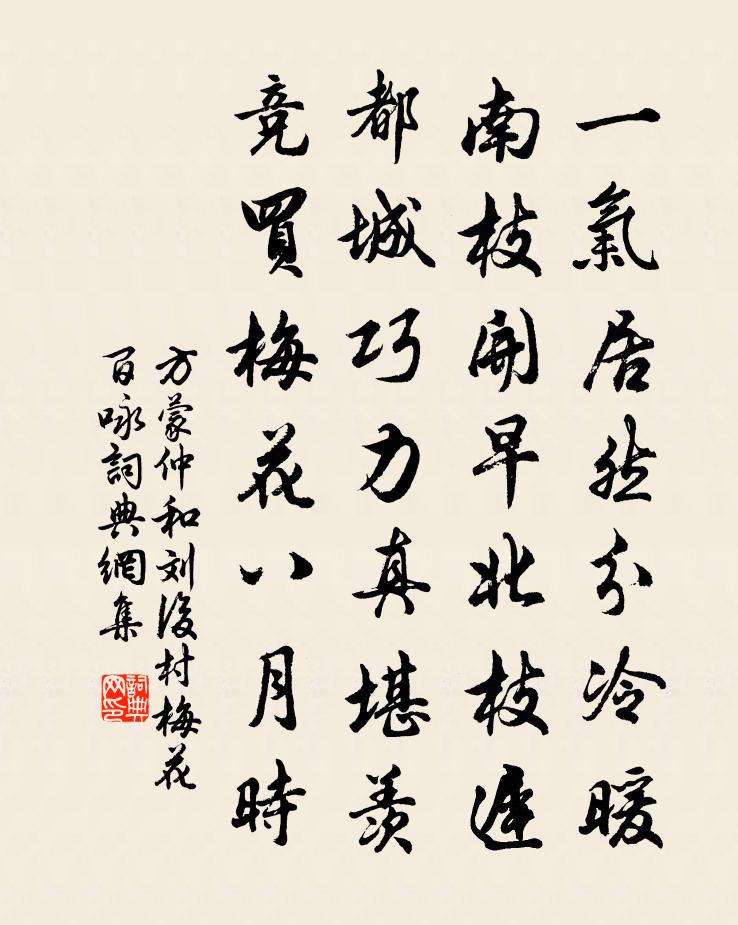 一氣居然分冷暖
南枝開早北枝遲
都城巧力真堪羨
競買梅花八月時
方蒙仲和刘後村梅花
百咏詞典網集
詞典
网印